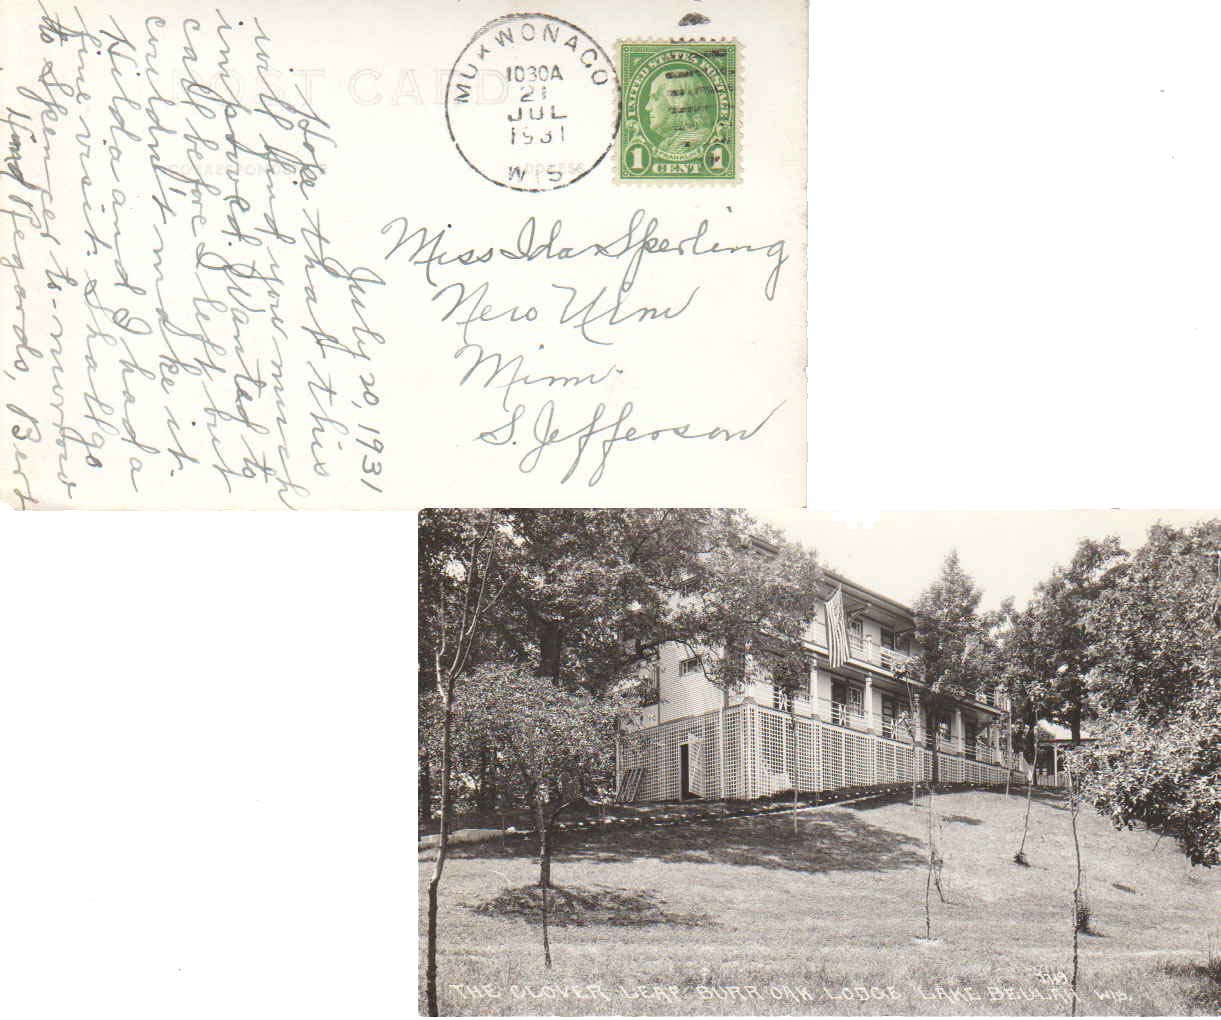 POST CARD
CORRESPONDENCE
ADDRESS
MUKWONAGO
1030A
21
JUL
1931
WIS
UNITED STATES POSTAGE
FRANKLIN
1 CENT 1
July 20, 1931
Hope that this
will find you much
improved. Wanted to
call before I left but
couldn't make it.
Hilda and I had a
fine visit. Shall go
to Spencer to-morrow
Kind Regards, Bert
Miss Ida Sperling
New Ulm
Minn.
S. Jefferson
THE CLOVER LEAF BURR OAK LODGE LAKE BEULAH WIS.